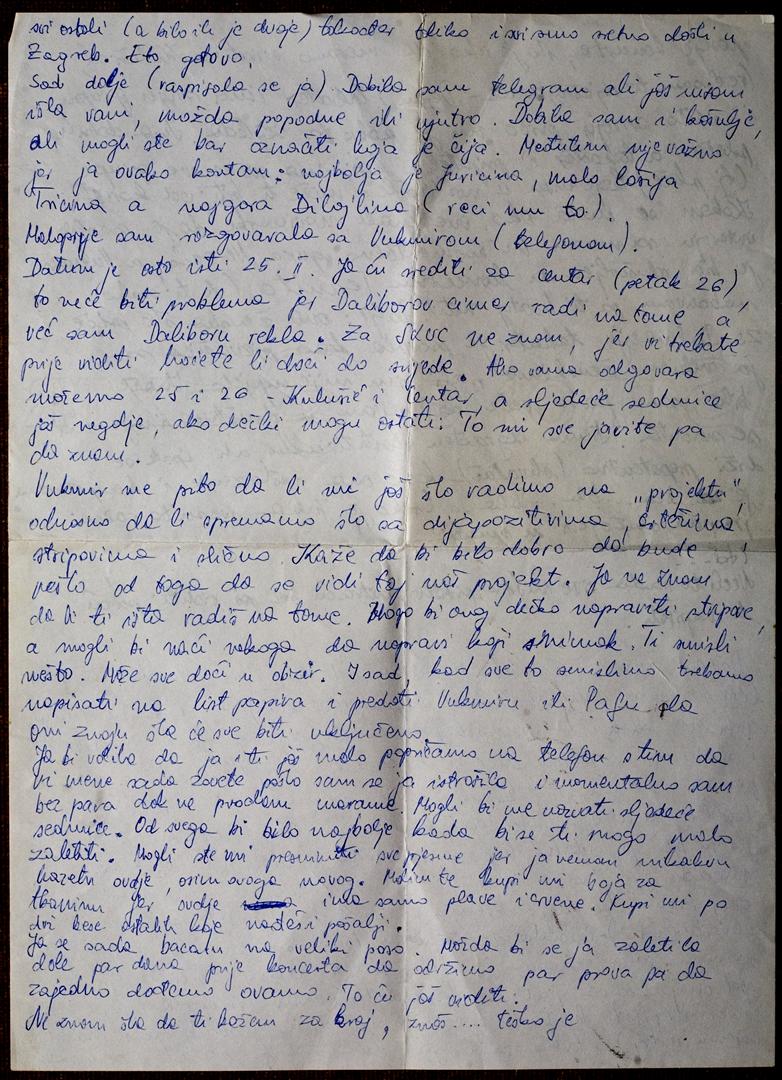 svi ostali (a bilo ih je dvoje) također toliko i svi smo sretno došli u
Zagreb. Eto gotovo.
Sad dalje (raspisala se ja). Dobila sam telegram ali još nisam
išla vani, možda popodne ili ujutro. Dobila sam i košulje,
ali mogli ste bar označiti koja je čija. Međutim nije važno
jer ja ovako kontam: najbolja je Juricina, malo lošija
Tricina a najgora Dilajlina (reci mu to).
Maloprije sam razgovarala sa Vukmirom (telefonom).
Datum je osto isti 25. II. Ja ću srediti za centar (petak 26),
to neće biti problema jer Daliborov cimer radi na tome, a
već sam Daliboru rekla. Za SKUC ne znam, jer vi trebate
prije vidjeti hoćete li doći do srijede. Ako vama odgovara
možemo 25 i 26 - Kulušić i Centar, a sljedeće sedmice
još negdje, ako dečki mogu ostati. To mi sve javite pa
da znam.
Vukmir me pito da li mi još što radimo na „projektu",
odnosno da li spremamo što sa dijapozitivima, crtežima,
stripovima i slično. Kaže da bi bilo dobro da bude
nešto od toga da se vidi taj naš projekt. Ja ne znam
da li ti išta radiš na tome. Mogo bi onaj dečko napraviti stripove,
a mogli bi naći nekoga da napravi koji snimak. Ti smisli
nešto. Može sve doći u obzir. I sad, kad sve to smislimo trebamo
napisati na list papira i predati Vukmiru ili Pafu da
oni znaju šta će sve biti uključeno.
Ja bi volila da ja i ti još malo popričamo na telefon s tim da
vi mene sada zovete pošto sam se ja istrošila i momentalno sam
bez para dok ne prodam marame. Mogli bi me nazvati sljedeće
sedmice. Od svega bi bilo najbolje kada bi se ti mogo malo
zaletiti. Mogli ste mi presnimiti sve pjesme jer ja nemam nikakvu
kazetu ovdje, osim ovoga novog. Molim te kupi mi boja za
tkaninu jer ovdje ima samo plave i crvene. Kupi mi po
dvi kese ostalih koje nađeš i pošalji.
Ja se sada bacam na veliki poso. Možda bi se ja zaletila
dole par dana prije koncerta da održimo par proba pa da
zajedno dođemo ovamo. To ću još viditi.
Ne znam šta da ti kažem za kraj, znaš.... teško je